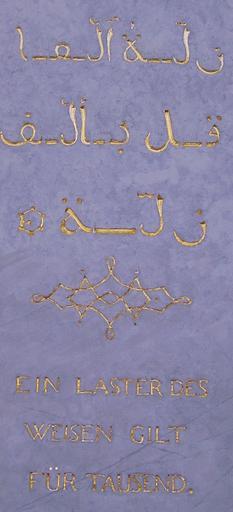 زلة العا
قل بألف
زلة
EIN LASTER DES
WEISEN GILT
FÜR TAUSEND.